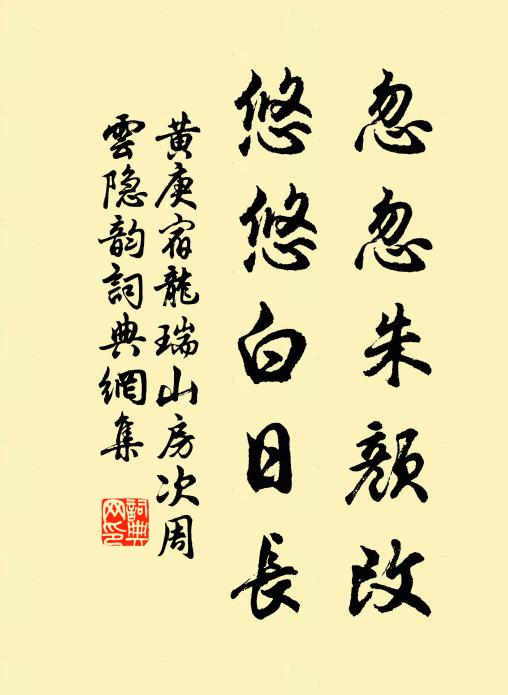 忽忽朱颜改
悠悠白日長
黄庚宿龍瑞山房次周
雲隐韵詞典網集
詞典
网印